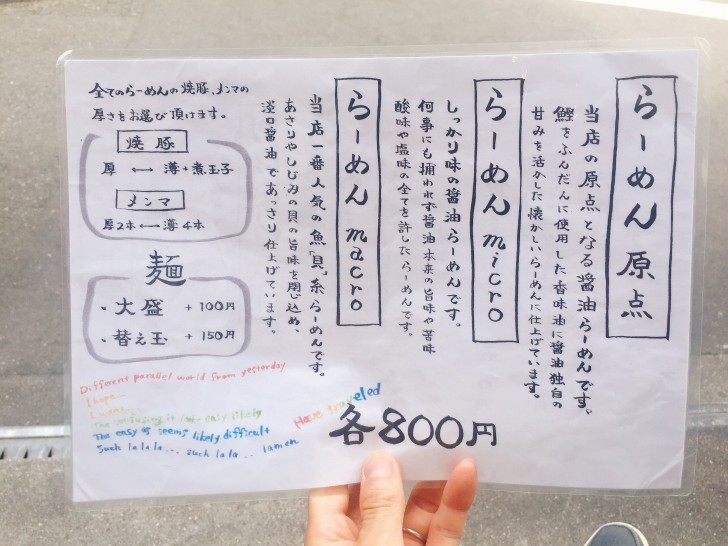 らーめん 原点
当店の原点となる醤油らーめんです。
鰹をふんだんに使用した香味油に醤油独自の
甘みを活かした懐かしいらーめんに仕上げています。
らーめん micro
しっかり味の醤油らーめんです。
何事にも捕われず醤油本来の旨味や苦味
酸味や塩味の全てを許したらーめんです。
らーめん macro
当店一番人気の魚「貝」系らーめんです。
あさりやしじみの貝の旨味を閉じ込め、
淡口醤油であっさり仕上げています。
全てのらーめんの焼豚、メンマの
厚さをお選び頂けます。
焼豚
厚 ←→ 薄+煮玉子
メンマ
厚2本 ←→ 薄4本
麺
・大盛 +100円
・替え玉 +150円
Different parallel world from yesterday
I hope...
The confusing is into easy likely
The easy as seems likely difficult
Such lalala... such lala.. lamen
Have traveled
各800円